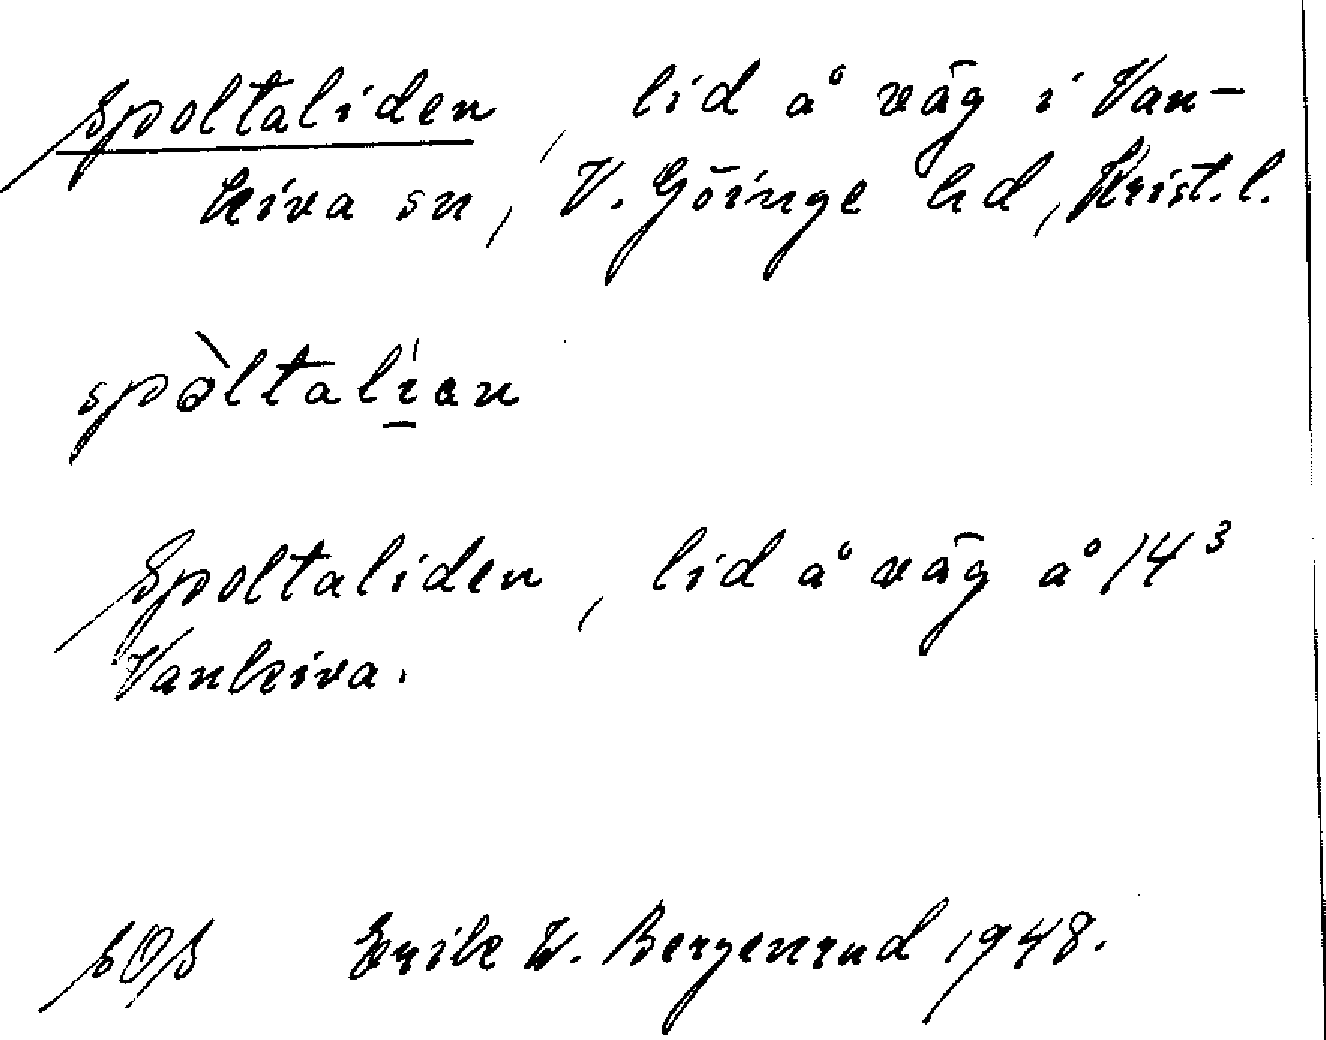 Spoltaliden, lid å väg i Van-
kiva sn, V. Göinge hd, Krist. l.
spòltalian
Spoltaliden, lid å väg å 14³
Vankiva.
SOS Erik W. Bergenrud 1948.